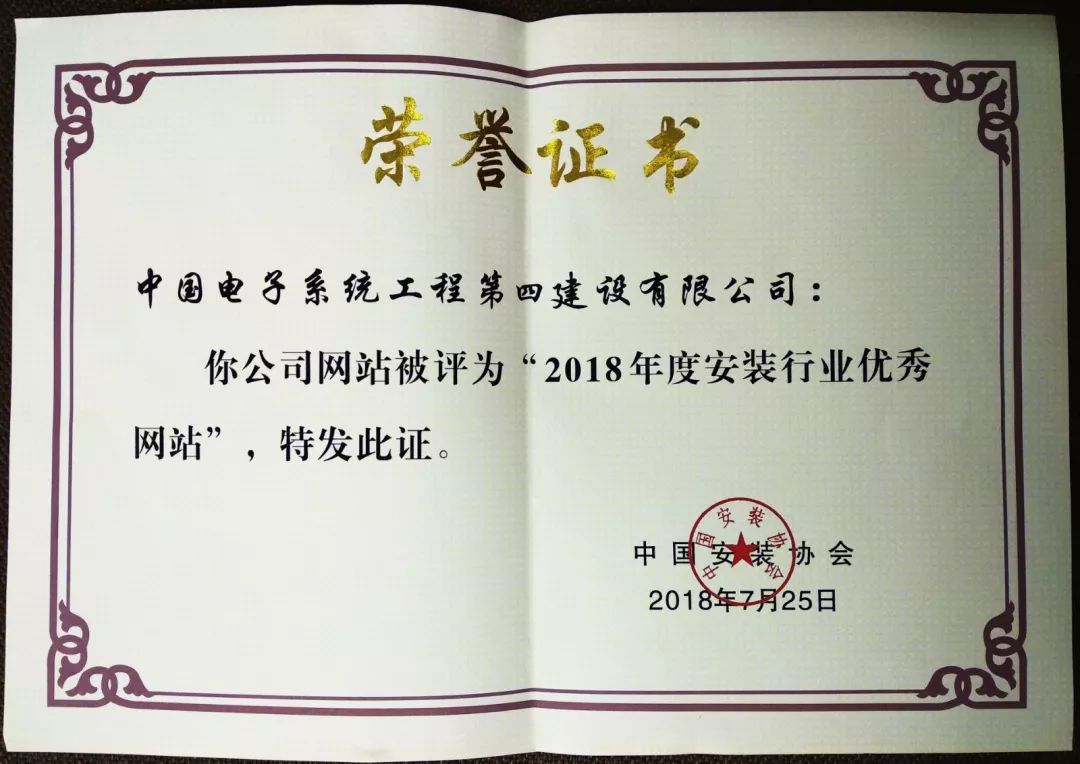 荣誉证书
中国电子系统工程第四建设有限公司：
你公司网站被评为“2018年度安装行业优秀
网站”，特发此证。
中国安装协会
中国安装协会
2018年7月25日